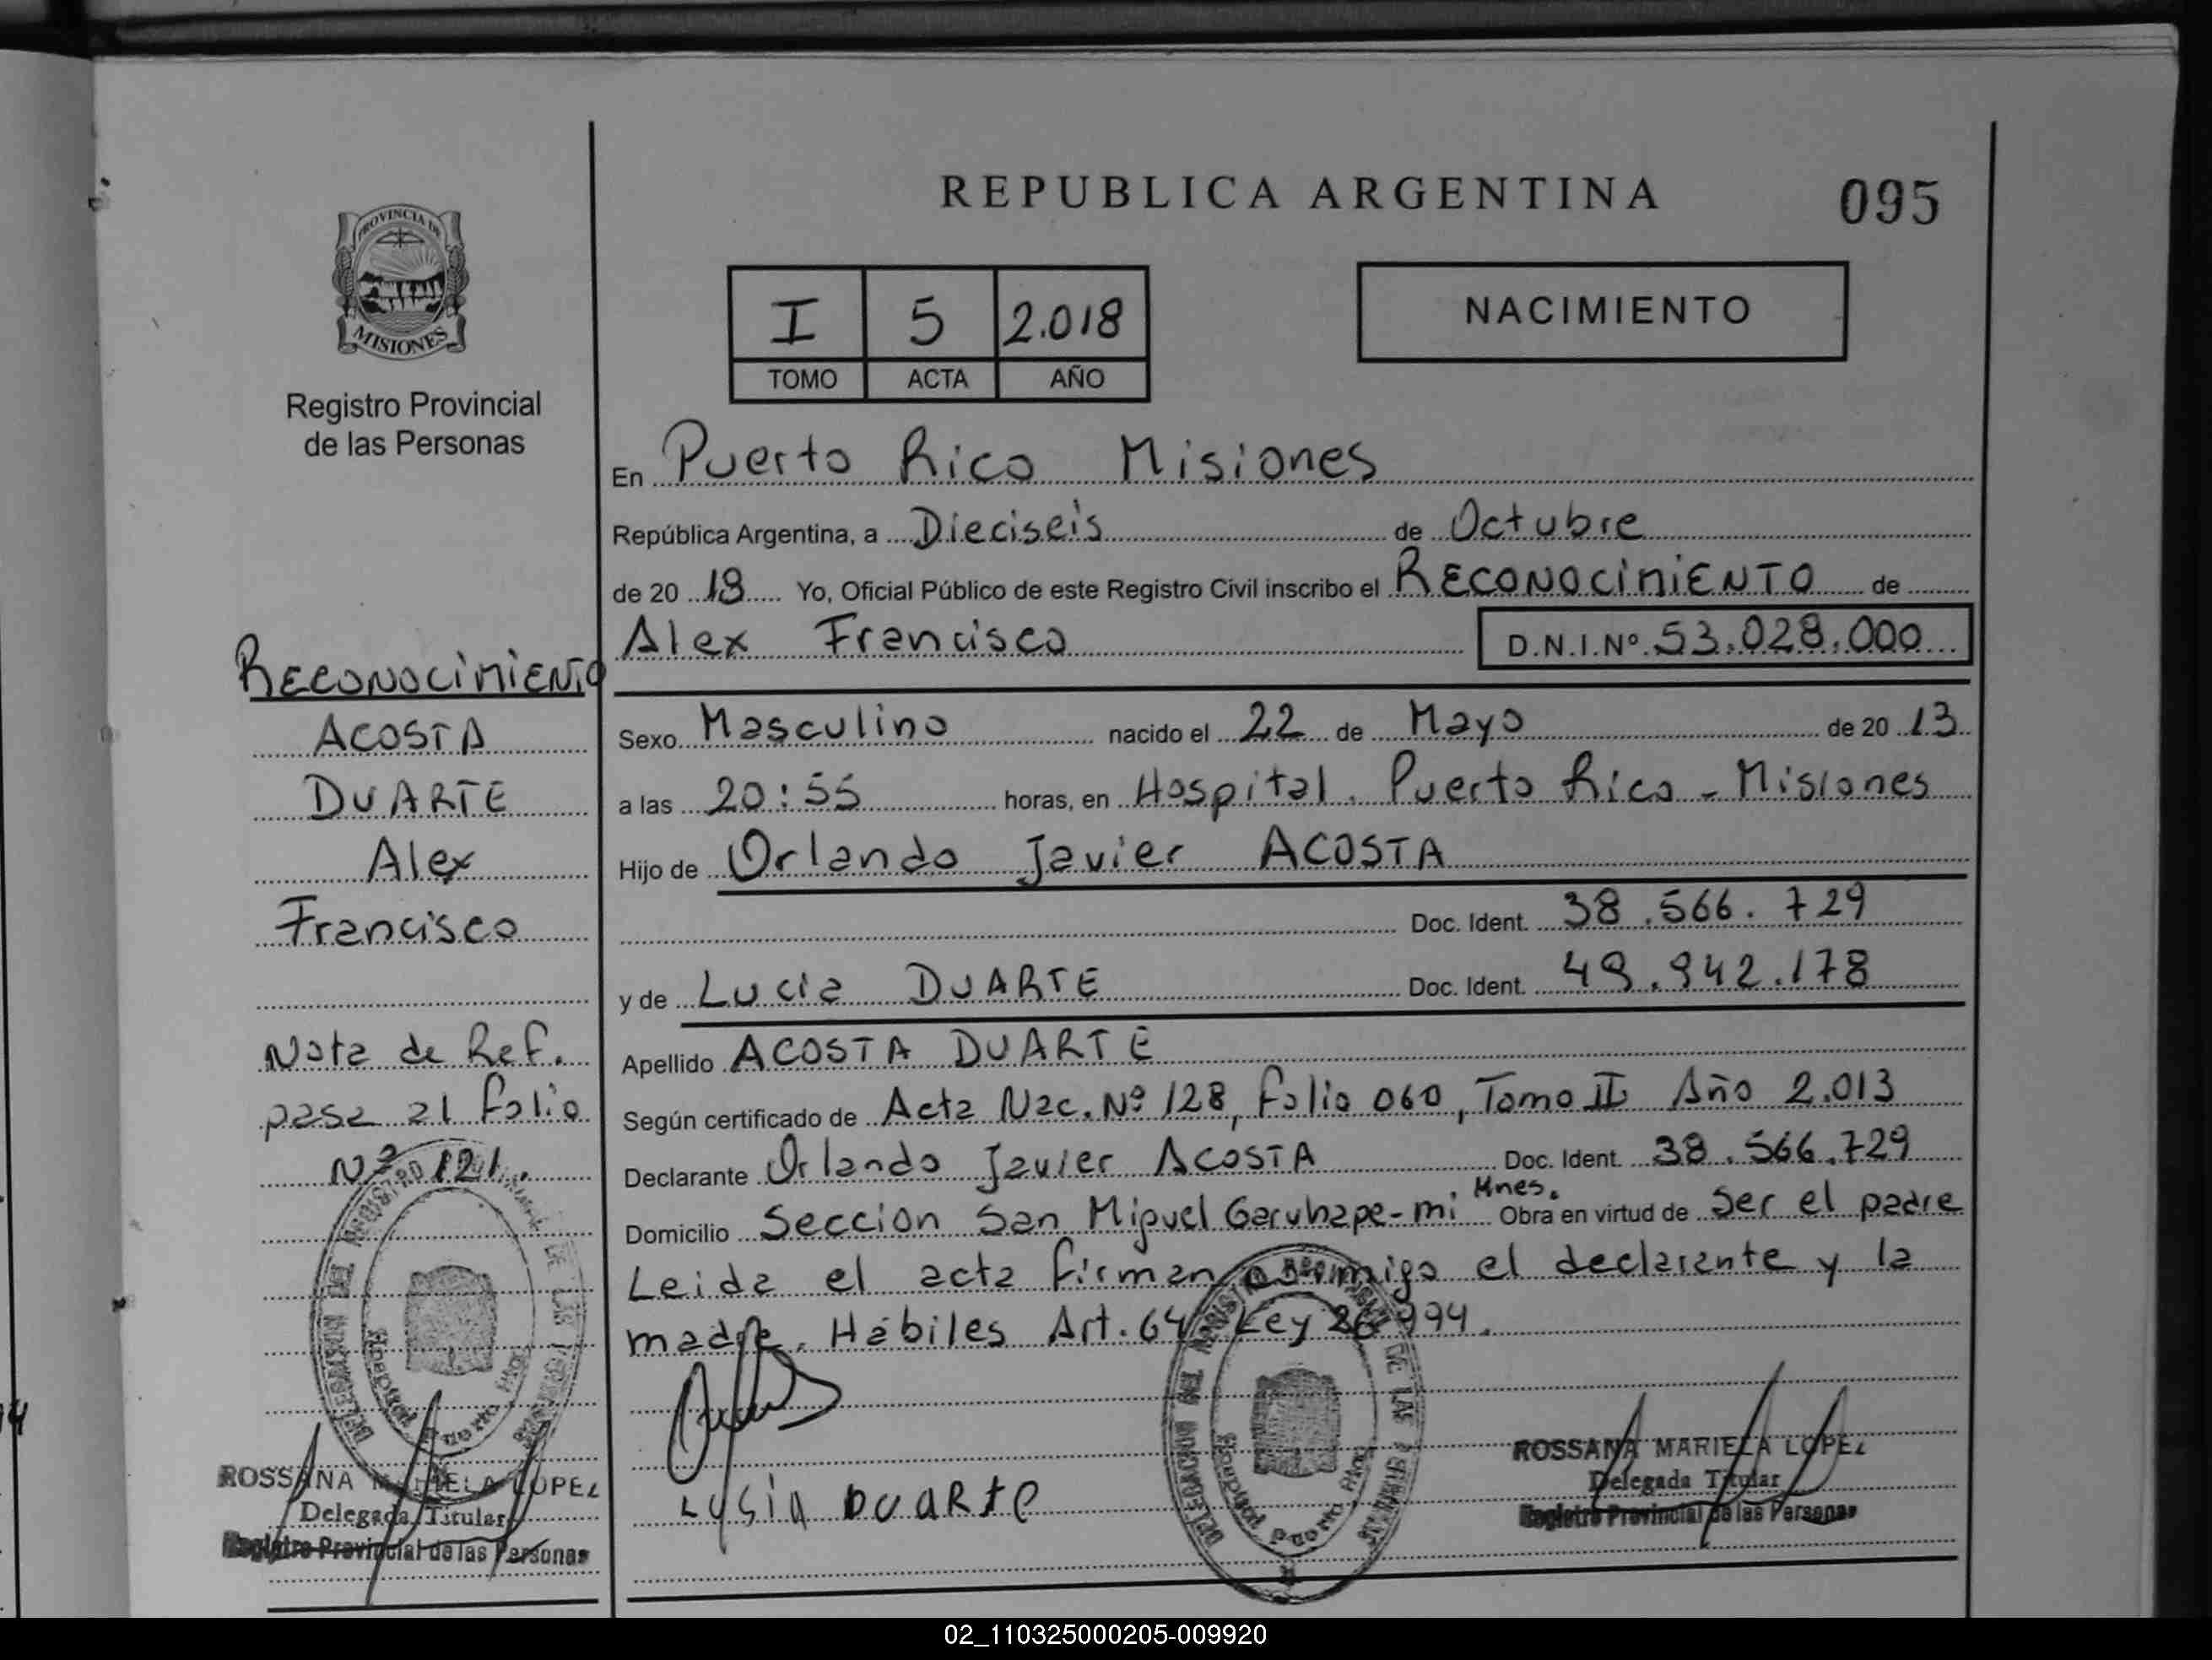 REPUBLICA ARGENTINA
095
PROVINCIA DE
MISIONES
Registro Provincial
de las Personas
I 5 2.018
TOMO ACTA AÑO
NACIMIENTO
En Puerto Rico Misiones
República Argentina, a Dieciseis de Octubre
de 20 18 Yo, Oficial Público de este Registro Civil inscribo el RECONOCIMIENTO de
Alex Francisco D.N.I.Nº 53.028.000
Sexo Masculino nacido el 22 de Mayo de 20 13
a las 20:55 horas, en Hospital. Puerto Rico - Misiones
Hijo de Orlando Javier ACOSTA
Doc. Ident. 38.566.729
y de Lucia DUARTE Doc. Ident. 49.942.178
Apellido ACOSTA DUARTE
Según certificado de Acta Nac. Nº 128, Folio 060, Tomo II Año 2.013
Declarante Orlando Javier ACOSTA Doc. Ident. 38.566.729
Domicilio Seccion San Miguel Garuhape-mi Mnes. Obra en virtud de Ser el padre
Leida el acta firman conmigo el declarante y la
madre. Hábiles Art. 64 Ley 26.994.
LUSIA DUARTE
ROSSANA MARIELA LOPEZ
Delegada Titular
Registro Provincial de las Personas
RECONOCIMIENTO
ACOSTA
DUARTE
Alex
Francisco
Nota de Ref.
pasa al folio
Nº 121.
ROSSANA MARIELA LOPEZ
Delegada Titular
Registro Provincial de las Personas
02_110325000205-009920